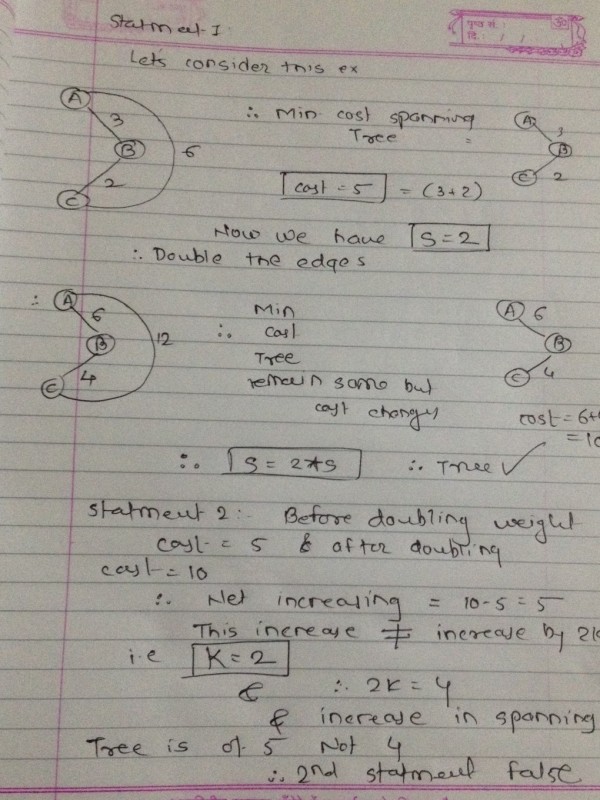 पृष्ठ सं.:
दि.: / /
Statment-I
Lets consider this ex
A
3
B
6
2
C
∴ Min cost spanning
Tree =
A
3
B
C
2
cost = 5 = (3+2)
Now we have S=2
∴ Double the edges
∴ A
6
B
12
4
C
Min
∴ cost
Tree
remain same but
cost changes
A
6
B
C
4
cost = 6+
= 10
∴ S = 2*S ∴ Tree ✓
Statment 2:- Before doubling weight
cost = 5 & after doubling
cost = 10
∴ Net increasing = 10-5 = 5
This increase ≠ increase by 2k
i.e K=2
& ∴ 2K = 4
& increase in spanning
Tree is of 5 Not 4
∴ 2nd statment false